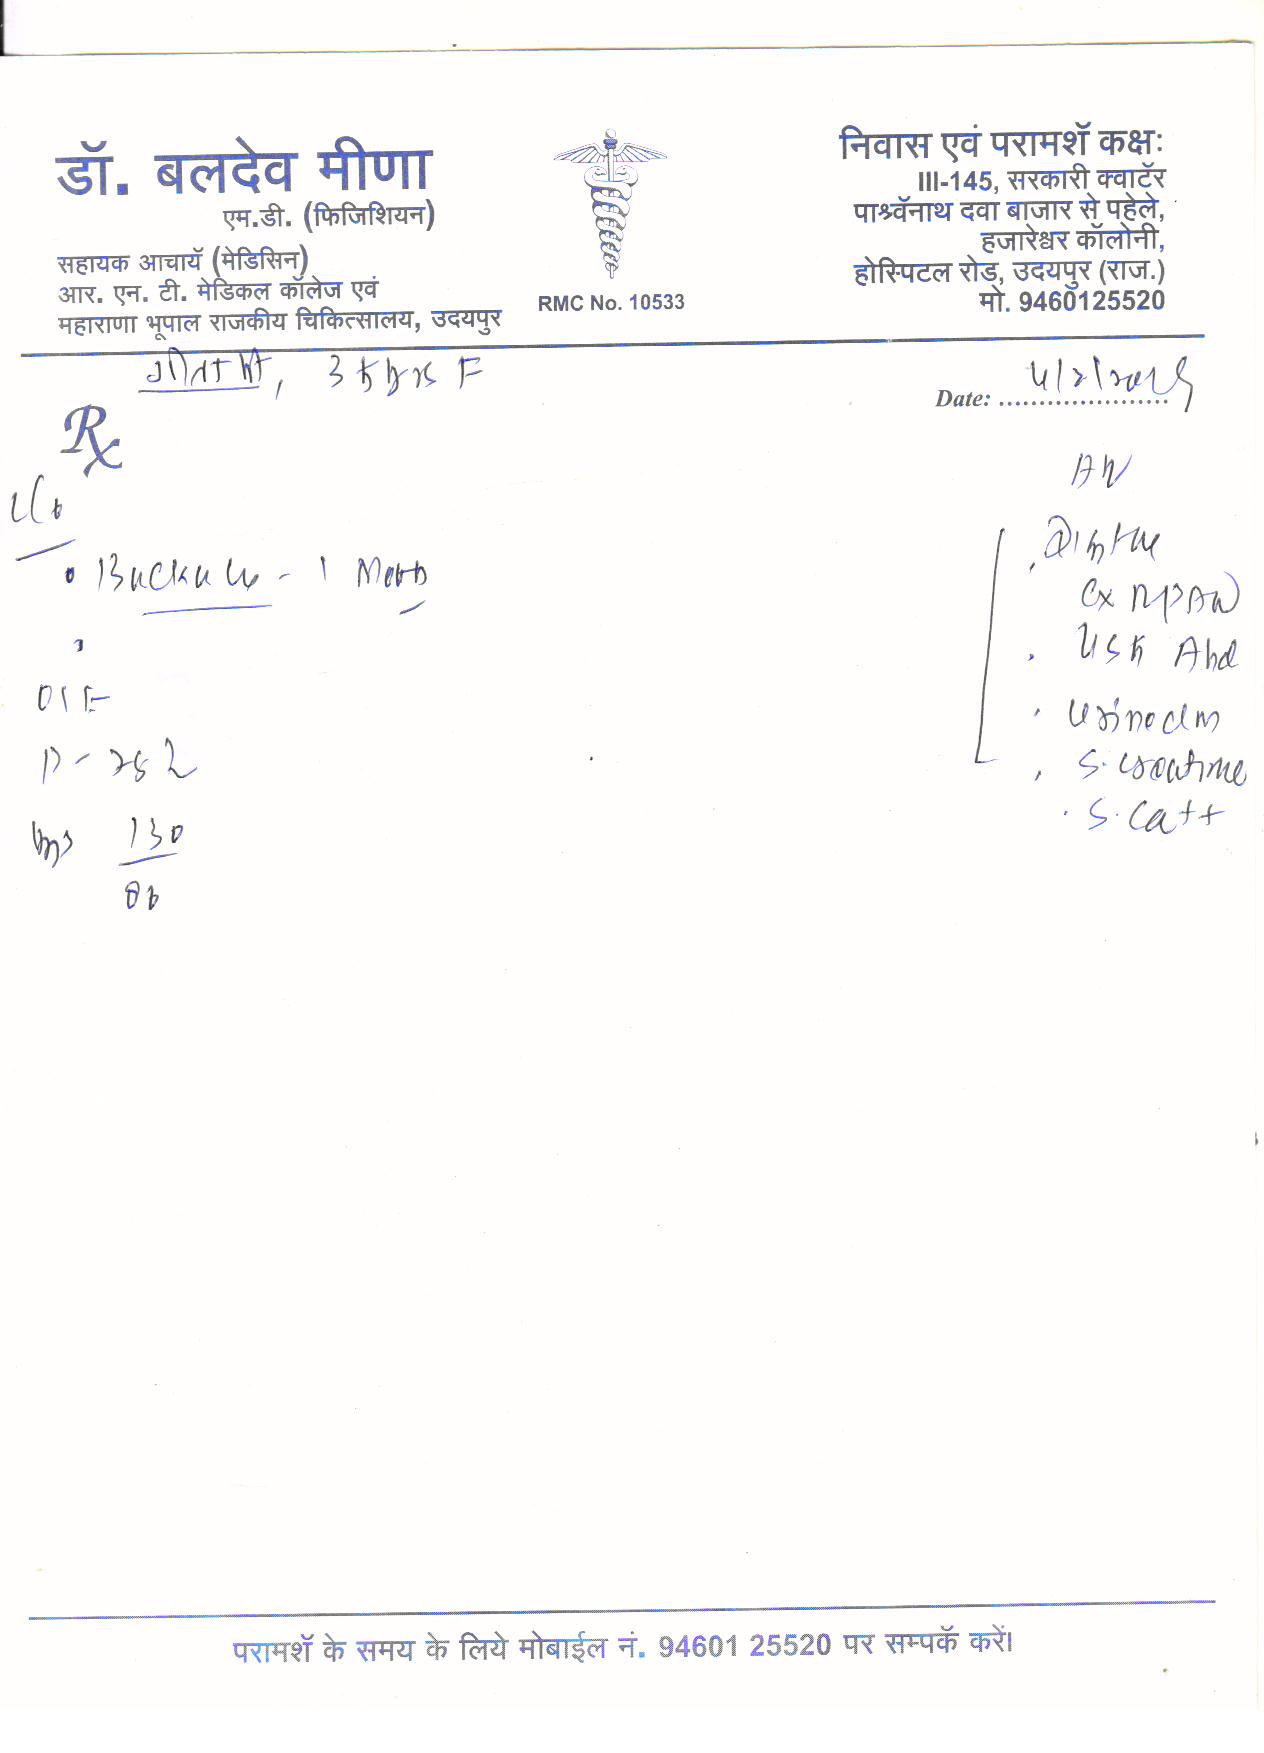 डॉ. बलदेव मीणा
एम.डी. (फिजिशियन)
सहायक आचार्य (मेडिसिन)
आर. एन. टी. मेडिकल कॉलेज एवं
महाराणा भूपाल राजकीय चिकित्सालय, उदयपुर
RMC No. 10533
निवास एवं परामर्श कक्षः
III-145, सरकारी क्वार्टर
पार्श्वनाथ दवा बाजार से पहेले,
हजारेश्वर कॉलोनी,
होस्पिटल रोड, उदयपुर (राज.)
मो. 9460125520
F
Date:
Rx
C/o
Backache - 1 Month
O/E
P-
130
Adv
X
USG Abd
S. Creatinine
S. Ca++
परामर्श के समय के लिये मोबाईल नं. 94601 25520 पर सम्पर्क करें।